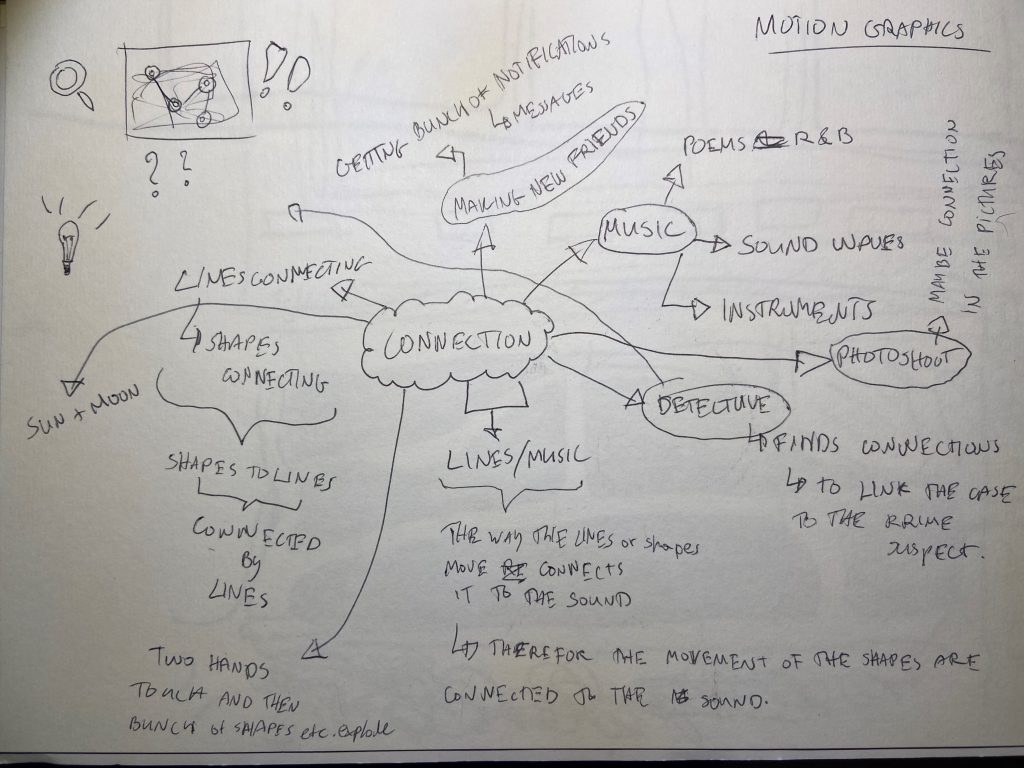 MOTION GRAPHICS
!!
? ?
GETTING BUNCH OF NOTIFICATIONS
MESSAGES
MAKING NEW FRIENDS
POEMS R & B
MUSIC
SOUND WAVES
INSTRUMENTS
MAYBE CONNECTION
IN THE PICTURES
PHOTOSHOOT
LINES CONNECTING
SHAPES
CONNECTING
CONNECTION
SUN + MOON
DETECTIVE
FINDS CONNECTIONS
TO LINK THE CASE
TO THE RRIME
SUSPECT.
SHAPES TO LINES
CONNECTED
By
LINES
LINES/MUSIC
THE WAY THE LINES or shapes
MOVE CONNECTS
IT TO THE SOUND
THEREFOR THE MOVEMENT OF THE SHAPES ARE
CONNECTED TO THE SOUND.
TWO HANDS
TOUCH AND THEN
BUNCH of SHAPES etc. explode